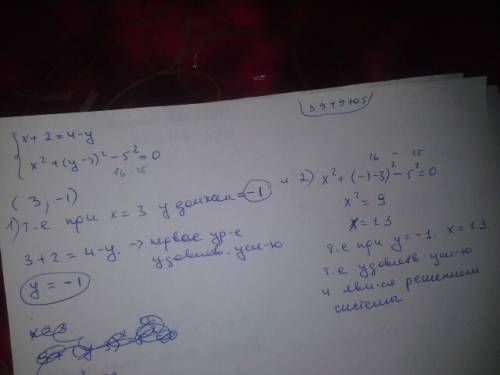 x + 2 = 4 - y
x² + (y - 3)² - 5² = 0
16 - 25
(3, -1)
1) т.е при x = 3 y должен = -1
3 + 2 = 4 - y. → первое ур-е
удовлетв. усл-ю
y = -1
16 - 25
и 2) x² + (-1-3)² - 5² = 0
x² = 9
x = ±3
т.е при y = -1. x = ±3.
т.е удовлетв усл-ю
и явл-ся решением
системы